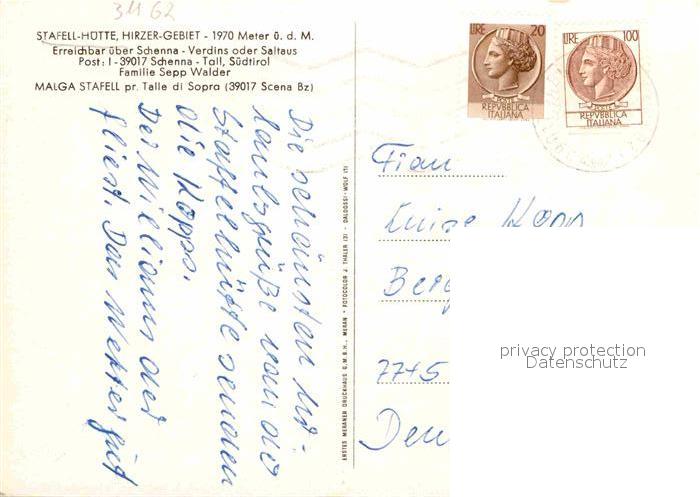 31 62
STAFELL-HÜTTE, HIRZER-GEBIET - 1970 Meter ü. d. M.
Erreichbar über Schenna - Verdins oder Saltaus
Post: I - 39017 Schenna - Tall, Südtirol
Familie Sepp Walder
MALGA STAFELL pr. Talle di Sopra (39017 Scena Bz)
LIRE 20
POSTE
REPVBBLICA
ITALIANA
LIRE 100
POSTE
REPVBBLICA
ITALIANA
Die schönsten Ur-
laubsgrüße von der
Staffelhütte senden
die Kopps.
Der
fliest. Das Wetter gut
ERSTES MERANER DRUCKHAUS G.M.B.H., MERAN * FOTOCOLOR J. THALER (3) - DALDOSSI - WOLF (1)
Frau
Luise Kopp
Berg
7745
Deu
privacy protection
Datenschutz